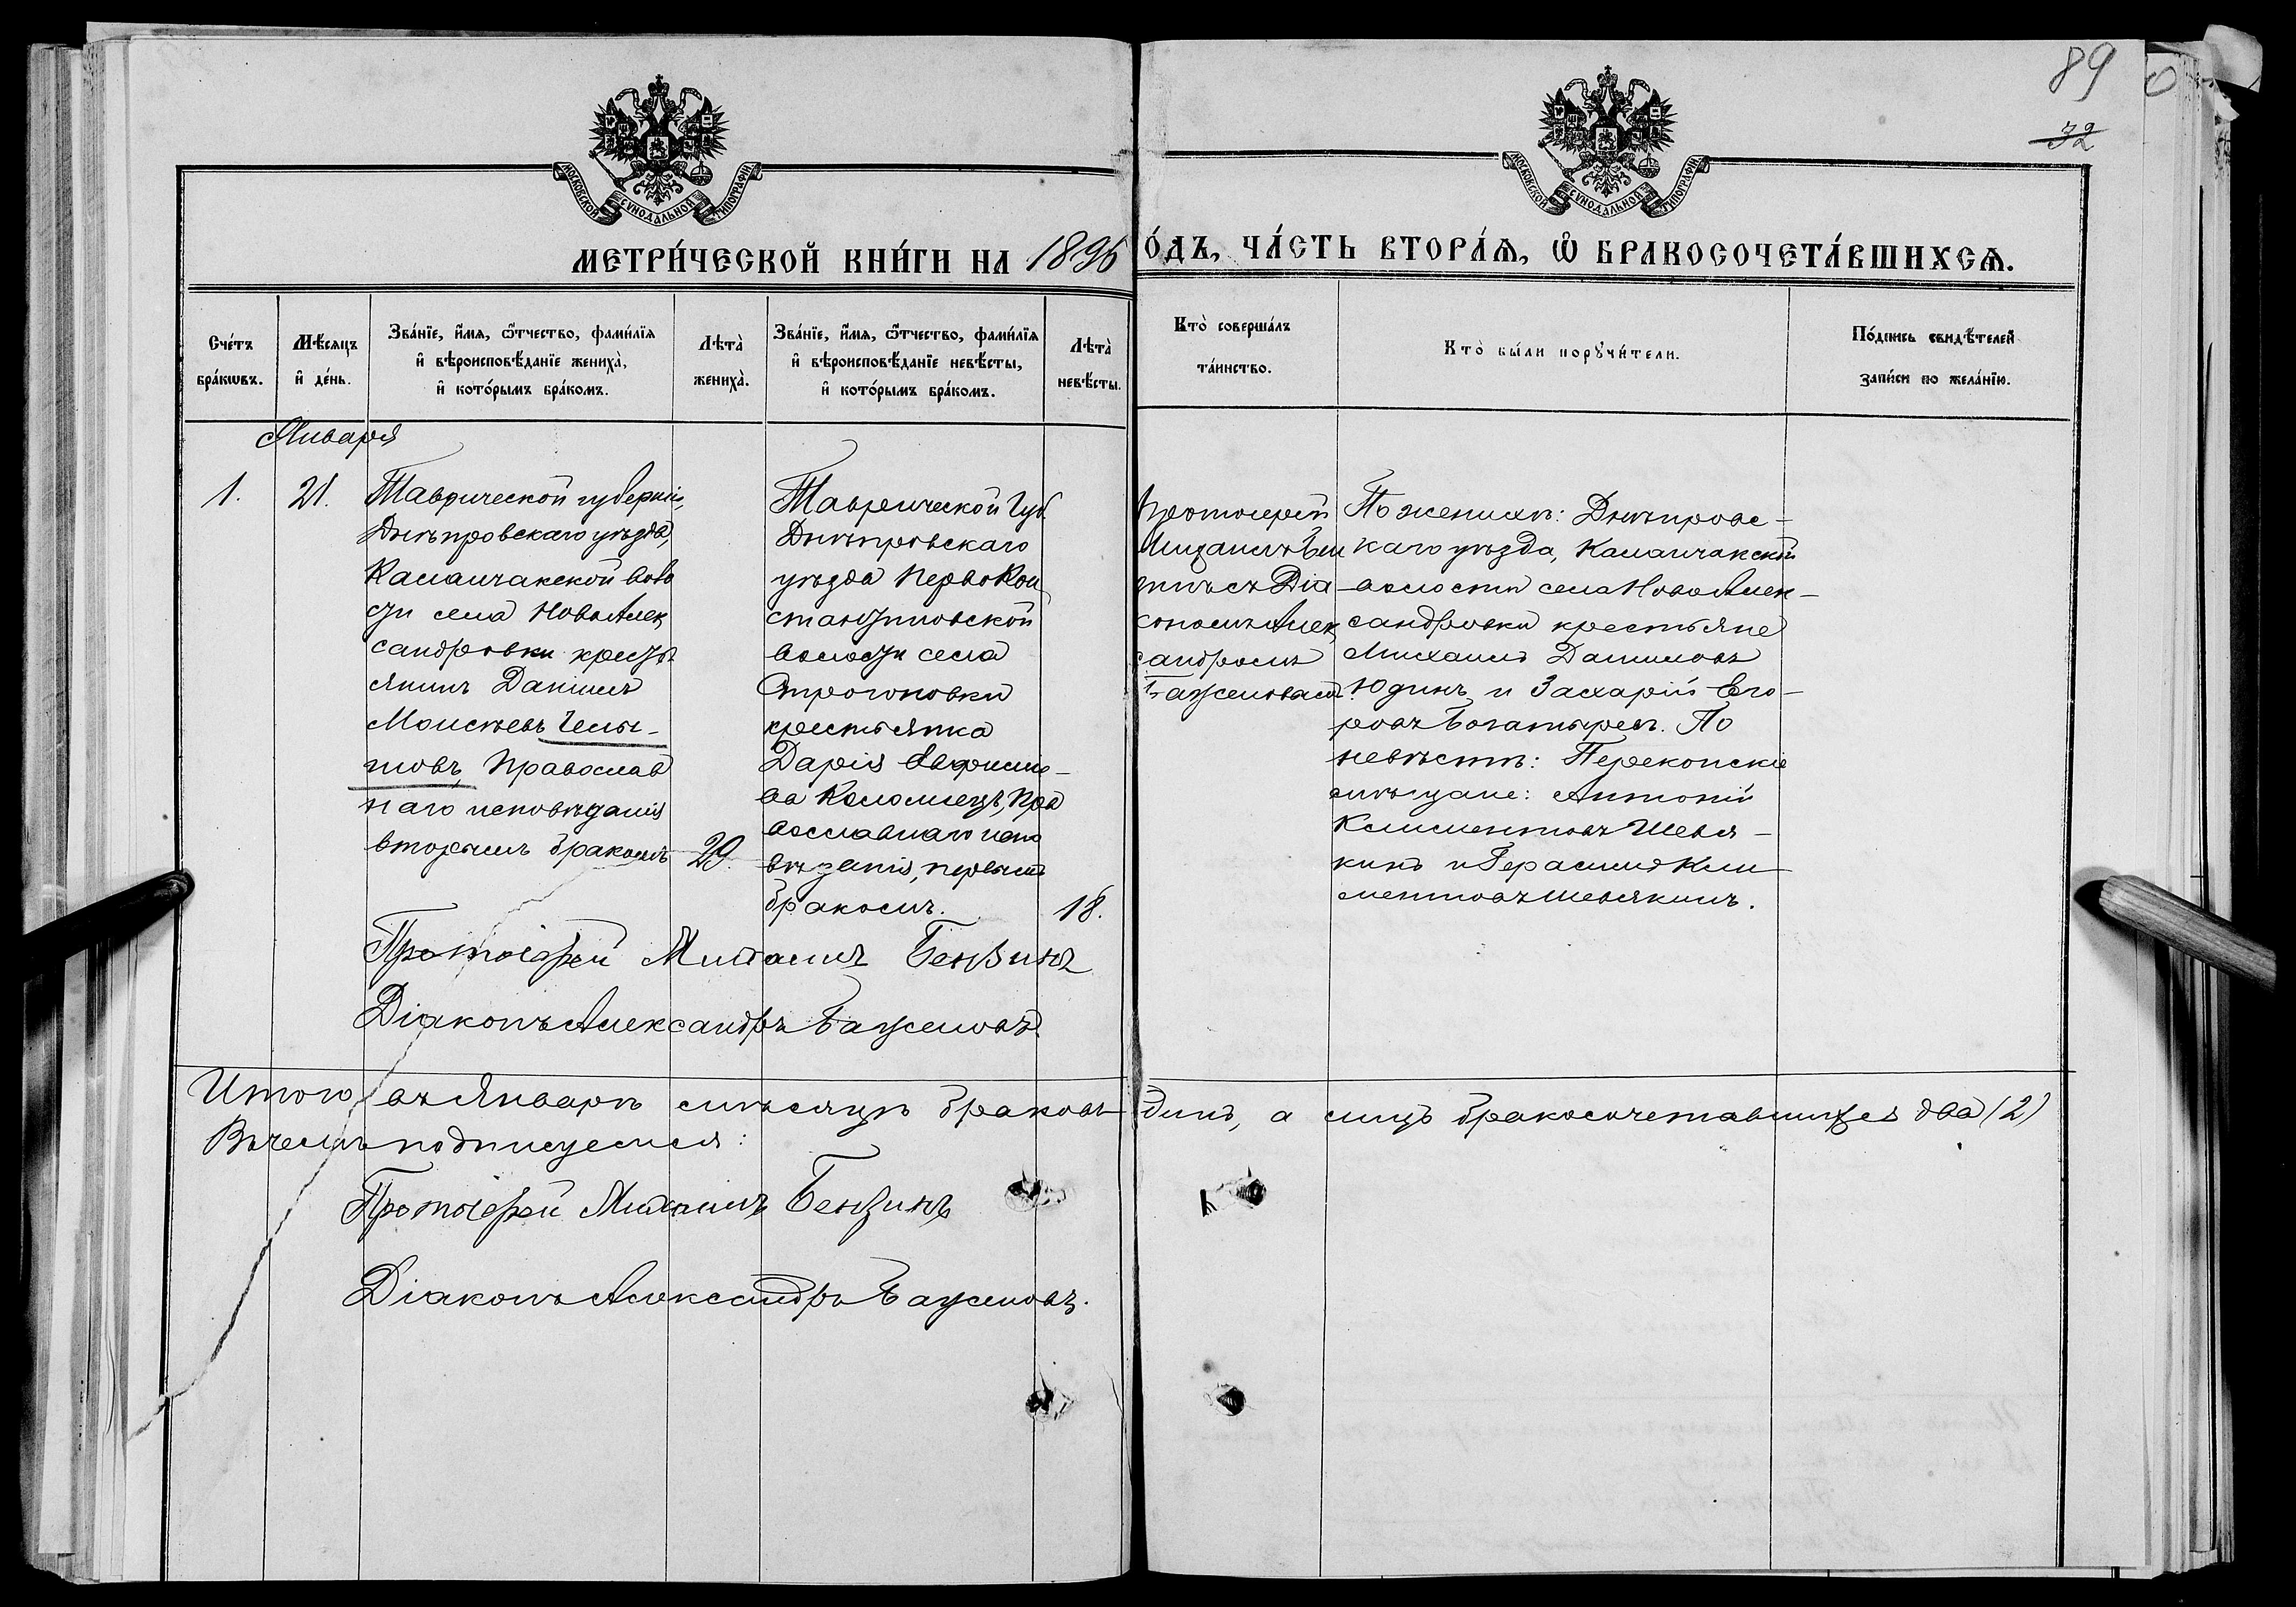 89
32
МОСКОВСКОЙ СѴНОДАЛЬНОЙ ТИПОГРАФІИ
МОСКОВСКОЙ СѴНОДАЛЬНОЙ ТИПОГРАФІИ
МЕТРИ́ЧЕСКОЙ КНИ́ГИ НА 1896
О́ДЪ, ЧА́СТЬ ВТОРА́Ѧ, Ѡ҆ БРАКОСОЧЕТА́ВШИХСѦ.
Сче́тъ
бра́кѡвъ.
Мѣ́сяцъ
и҆ де́нь.
Зва́нїе, и҆́мя, ѻ҆́тчество, фами́лїя
и҆ вѣроисповѣ́данїе жениха̀,
и҆ кото́рымъ бра́комъ.
Лѣта̀
жениха̀.
Зва́нїе, и҆́мя, ѻ҆́тчество, фами́лїя
и҆ вѣроисповѣ́данїе невѣ́сты,
и҆ кото́рымъ бра́комъ.
Лѣта̀
невѣ́сты.
Кто̀ соверша́лъ
та́инство.
Кто̀ бы́ли порꙋчи́тели.
По́дпись свидѣ́телей
за́писи по жела́нїю.
Января
1.
21.
Таврической губерніи,
Днѣпровскаго уѣзда,
Каланчакской воло
сти села НовоАлек
сандровки кресть
янинъ Даніилъ
Моисеевъ Челы-
шовъ, Православ
наго исповѣданія
вторымъ бракомъ
29.
Таврической Губ.
Днѣпровскаго
уѣзда ПервоКон
стантиновской
волости села
Строгоновки
крестьянка
Дарія Евфиміе-
ва Коломіецъ, Пра
вославнаго испо
вѣданія, первымъ
бракомъ.
18.
Протоіерей
Михаилъ Бен
зинъ съ Діа
кономъ Алек
сандромъ
Баженовымъ
По женихѣ: Днѣпровс-
каго уѣзда, Каланчакской
волости села НовоАлек-
сандровки крестьяне
Михаилъ Даниловъ
Юдинъ и Захарій Его-
ровъ Богатыревъ. По
невѣстѣ: Перекопскіе
мѣщане: Антоній
Климентовъ Шевя-
кинъ и Герасимъ Кли
ментовъ Шевякинъ.
Протоіерей Михаилъ Бензинъ
Діаконъ Александръ Баженовъ.
Итого въ Январѣ мѣсяцѣ браковъ динъ, а лицъ бракосочетавшихся два (2)
Въ чемъ подписуемся:
Протоіерей Михаилъ Бензинъ
Діаконъ Александръ Баженовъ.